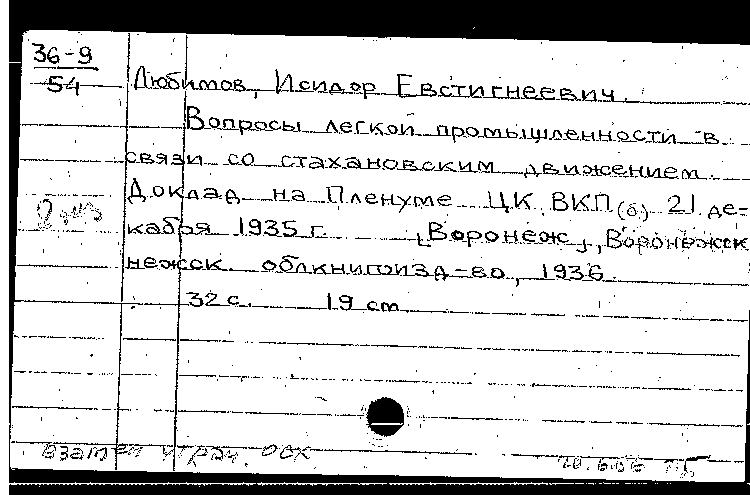 36-9
54
Любимов, Исидор Евстигнеевич.
Вопросы легкой промышленности в
связи со стахановским движением.
Доклад на Пленуме ЦК ВКП(б) 21 де-
2 экз
кабря 1935 г. [Воронеж], Воронежск
нежск. облкнигоизд-во, 1936.
32 с. 19 cm
взамен утрач. ОСК